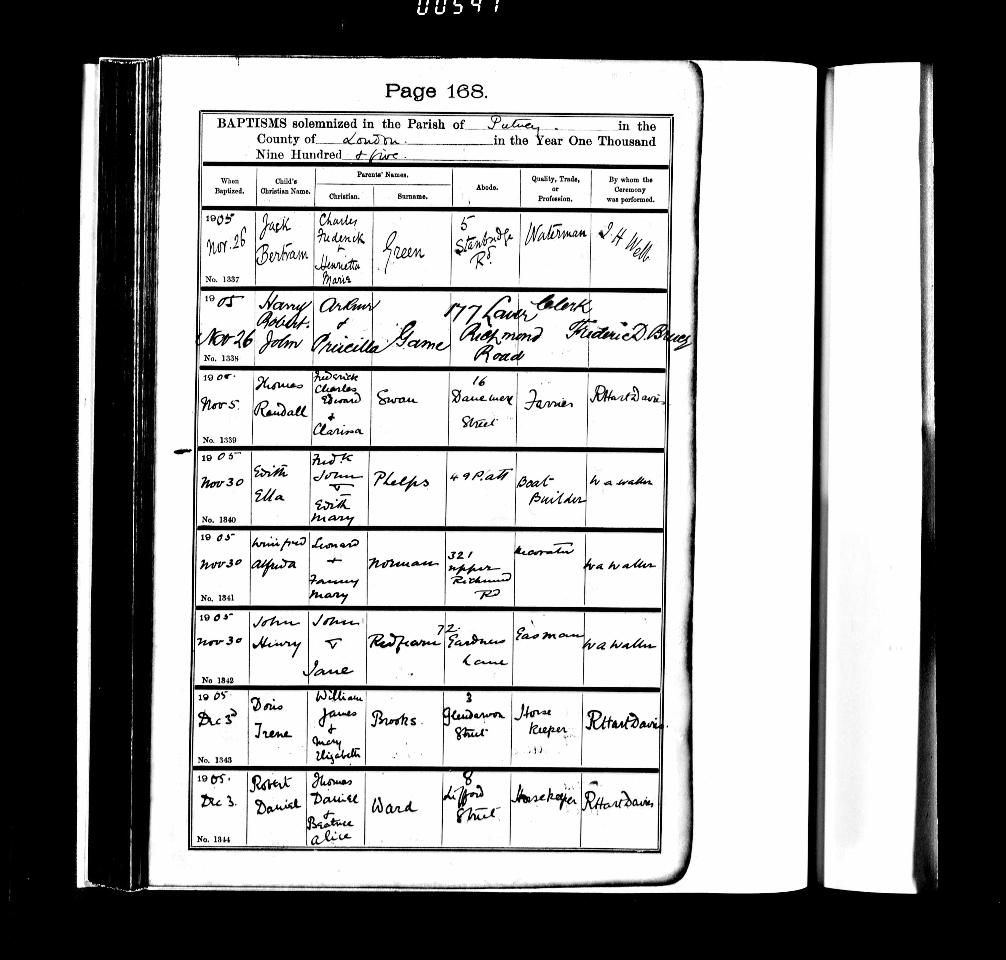 00597
Page 168.
BAPTISMS solemnized in the Parish of Putney. in the
County of London. in the Year One Thousand
Nine Hundred & five.
When Baptized. Child's Christian Name. Parents' Names. Christian. Surname. Abode. Quality, Trade, or Profession. By whom the Ceremony was performed.
1905
Nov. 26
No. 1337
Jack
Bertram
Charles
Frederick
+
Henrietta
Maria
Green
5
Stanbridge
Rd.
Waterman
1905
Nov 26
No. 1338
Harry
Robert
John
Arthur
&
Priscilla
Game
177 Lower
Richmond
Road
Clerk
Frederic D. Brucy
1905.
Nov 5.
No. 1339
Thomas
Randall
Frederick
Charles
Edward
&
Clarissa
Swan
16
Danemere
Street
Farrier
RHart Davis
1905
Nov 30
No. 1340
Edith
Ella
Fredk
John
+
Edith
Mary
Phelps
49 Platt
Boat
Builder
W A Waller
1905
Nov 30
No. 1341
Winifred
Alfreda
Leonard
+
Fanny
Mary
Norman
321
Upper
Richmond
RD
Decorator
W A Waller
1905
Nov 30
No 1342
John
Henry
John
+
Jane
Redfearn
72
Gardners
Lane
Gasman
W A Waller
1905
Dec 3d
No. 1343
Doris
Irene
William
James
&
Mary
Elizabeth
Brooks.
3
Glendarvon
Street
Horse
Keeper
RHart Davis
1905.
Dec 3.
No. 1344
Robert
Daniel
Thomas
Daniel
&
Beatrice
Alice
Ward
8
Lifford
Street
Horsekeeper
RHart Davis